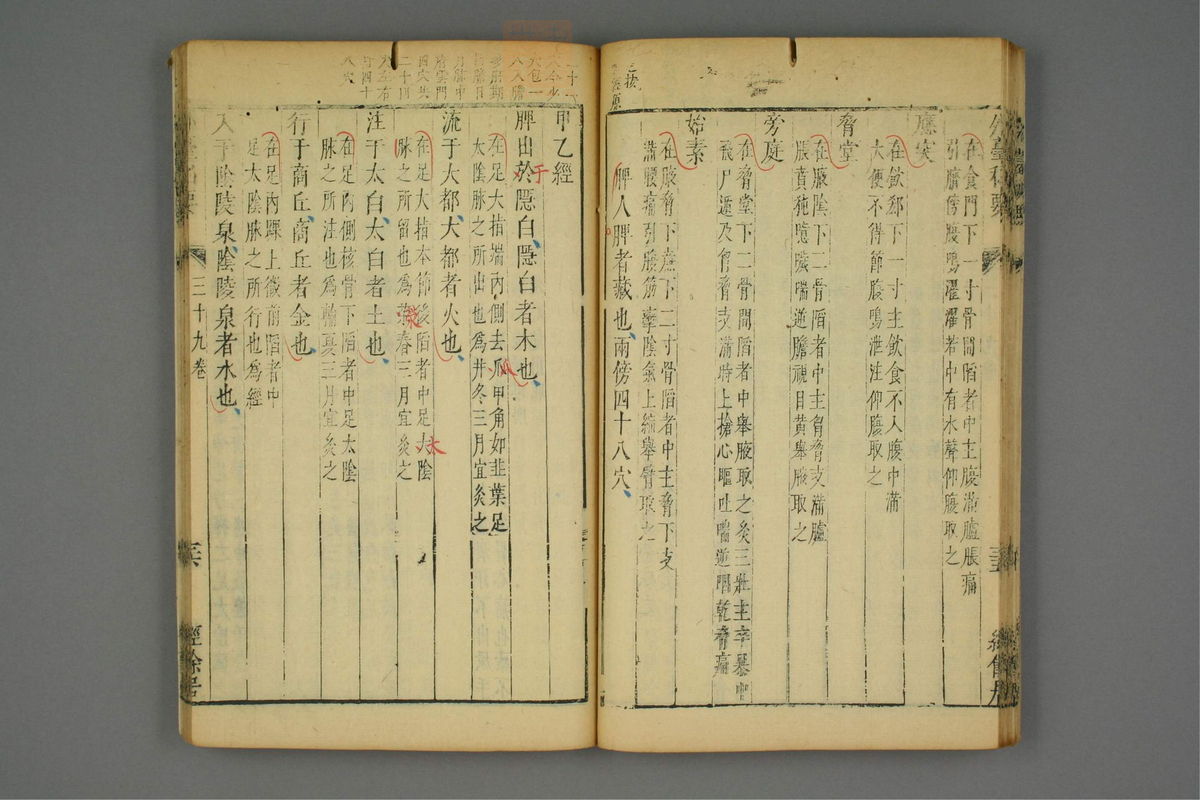 外臺秘要
在食門下一寸骨間陷者中主腹滿臚脹痛
引臍傍腹鳴濯濯若中有水聲仰腹取之
應突
在飲郄下一寸主飲食不入腹中滿
大便不得節腹鳴泄注仰腹取之
脅堂
在腋陰下二骨陷者中主胷脅支滿臚
脹賁㹠噫噦喘逆膽視目黃舉腋取之
旁庭
在脅堂下二骨間陷者中舉腋取之灸三壯主卒暴中
飛尸遁及胷脅支滿時上搶心嘔吐喘逆咽乾脅痛
始素
在腋脅下廉下二寸骨陷者中主脅下支
滿腰痛引腹筋攣陰氣上縮舉臂取之
脾人脾者藏也兩傍四十八穴
甲乙經
脾出於隱白隱白者木也
于
在足大指端內側去爪甲角如韭葉足
太陰脈之所出也為井冬三月宜灸之
流于大都大都者火也
在足大指本節後陷者中足大陰
太
脈之所留也為滎春三月宜灸之
注于太白太白者土也
在足內側核骨下陷者中足太陰
脈之所注也為輸夏三月宜灸之
行于商丘商丘者金也
在足內踝上微前陷者中
足太陰脈之所行也為經
入于陰陵泉陰陵泉者水也
三十九卷
經餘居